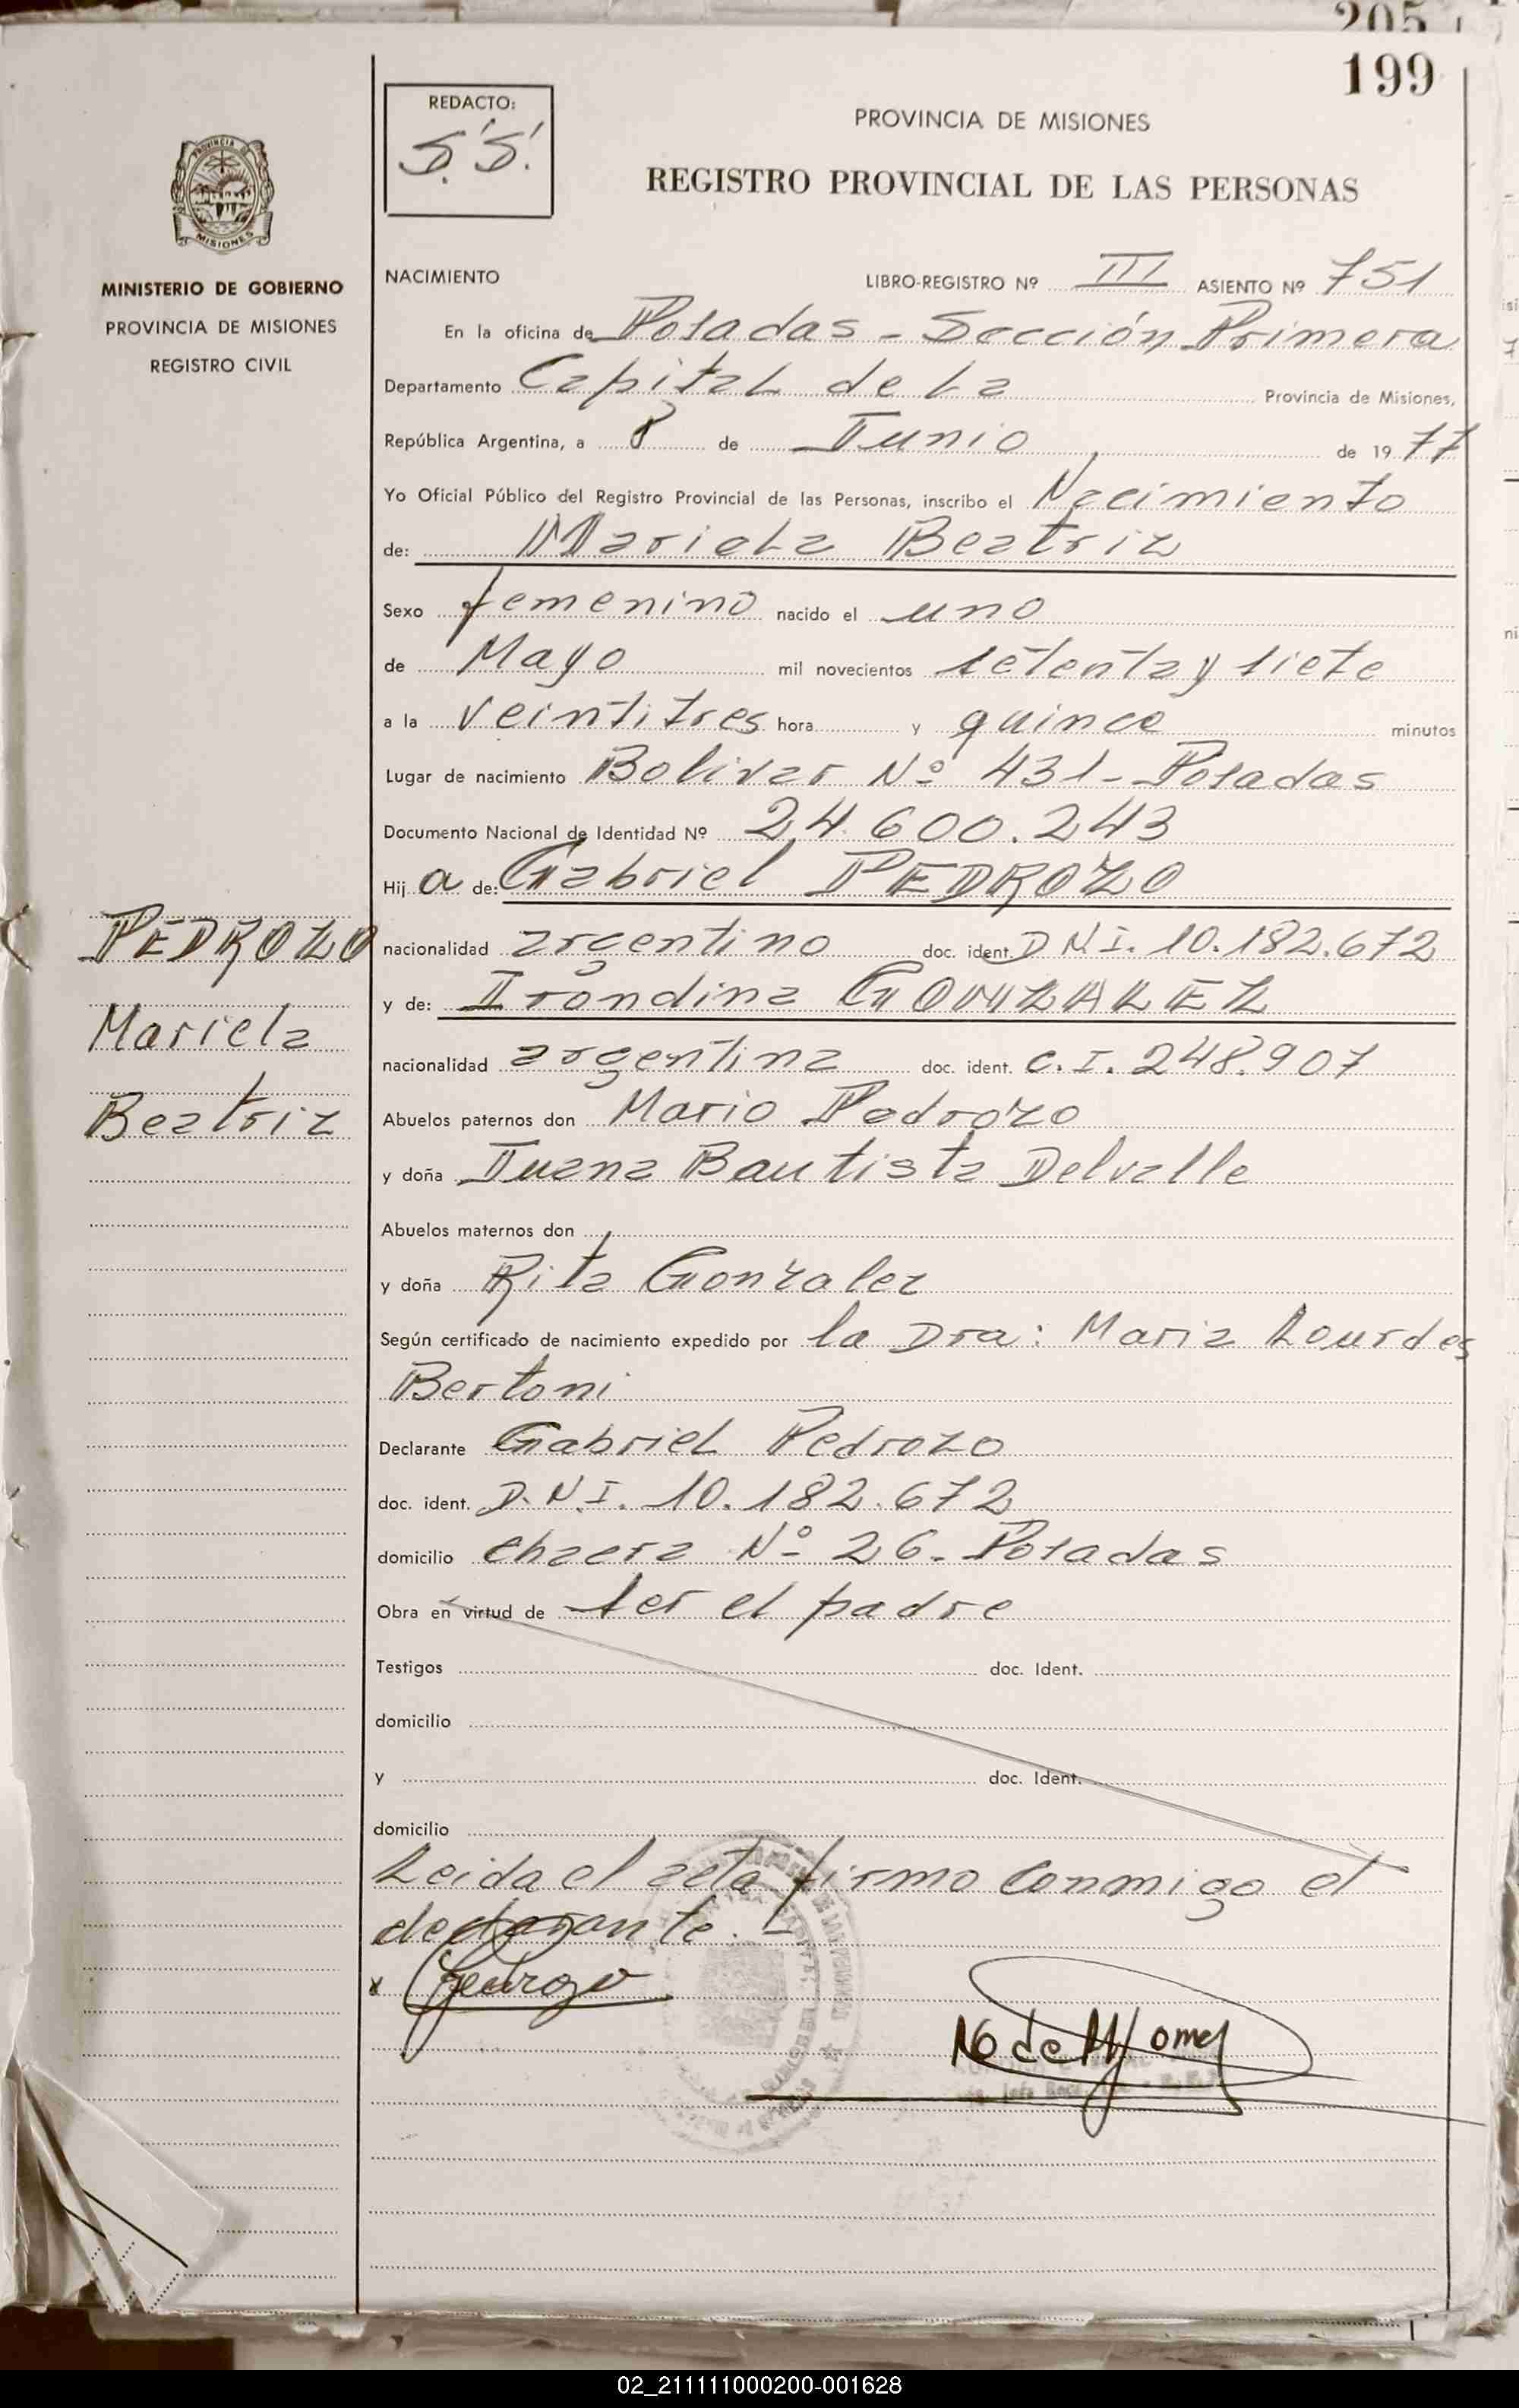 205
199
REDACTO:
S.S.
PROVINCIA DE MISIONES
REGISTRO PROVINCIAL DE LAS PERSONAS
PROVINCIA DE
MISIONES
MINISTERIO DE GOBIERNO
PROVINCIA DE MISIONES
REGISTRO CIVIL
NACIMIENTO LIBRO-REGISTRO Nº III ASIENTO Nº 751
En la oficina de Posadas - Sección Primera
Departamento Capital de la Provincia de Misiones,
República Argentina, a 8 de Junio de 1977
Yo Oficial Público del Registro Provincial de las Personas, inscribo el Nacimiento
de: Mariela Beatriz
Sexo femenino nacido el uno
de Mayo mil novecientos setenta y siete
a la veintitres hora y quince minutos
Lugar de nacimiento Bolivar Nº 431 - Posadas
Documento Nacional de Identidad Nº 24.600.243
Hij a de: Gabriel PEDROZO
nacionalidad argentino doc. ident. D.N.I. 10.182.672
y de: Irondina GONZALEZ
nacionalidad argentina doc. ident. C.I. 248.907
Abuelos paternos don Mario Pedrozo
y doña Juana Bautista Delvalle
Abuelos maternos don
y doña Rita Gonzalez
Según certificado de nacimiento expedido por la Dra: Maria Lourdes
Bertoni
Declarante Gabriel Pedrozo
doc. ident. D.N.I. 10.182.672
domicilio chacra Nº 26 - Posadas
Obra en virtud de ser el padre
Testigos doc. Ident.
domicilio
y doc. Ident.
domicilio
Leida el acta firmo conmigo el
declarante. -
x Pedrozo
PEDROZO
Mariela
Beatriz
02_211111000200-001628